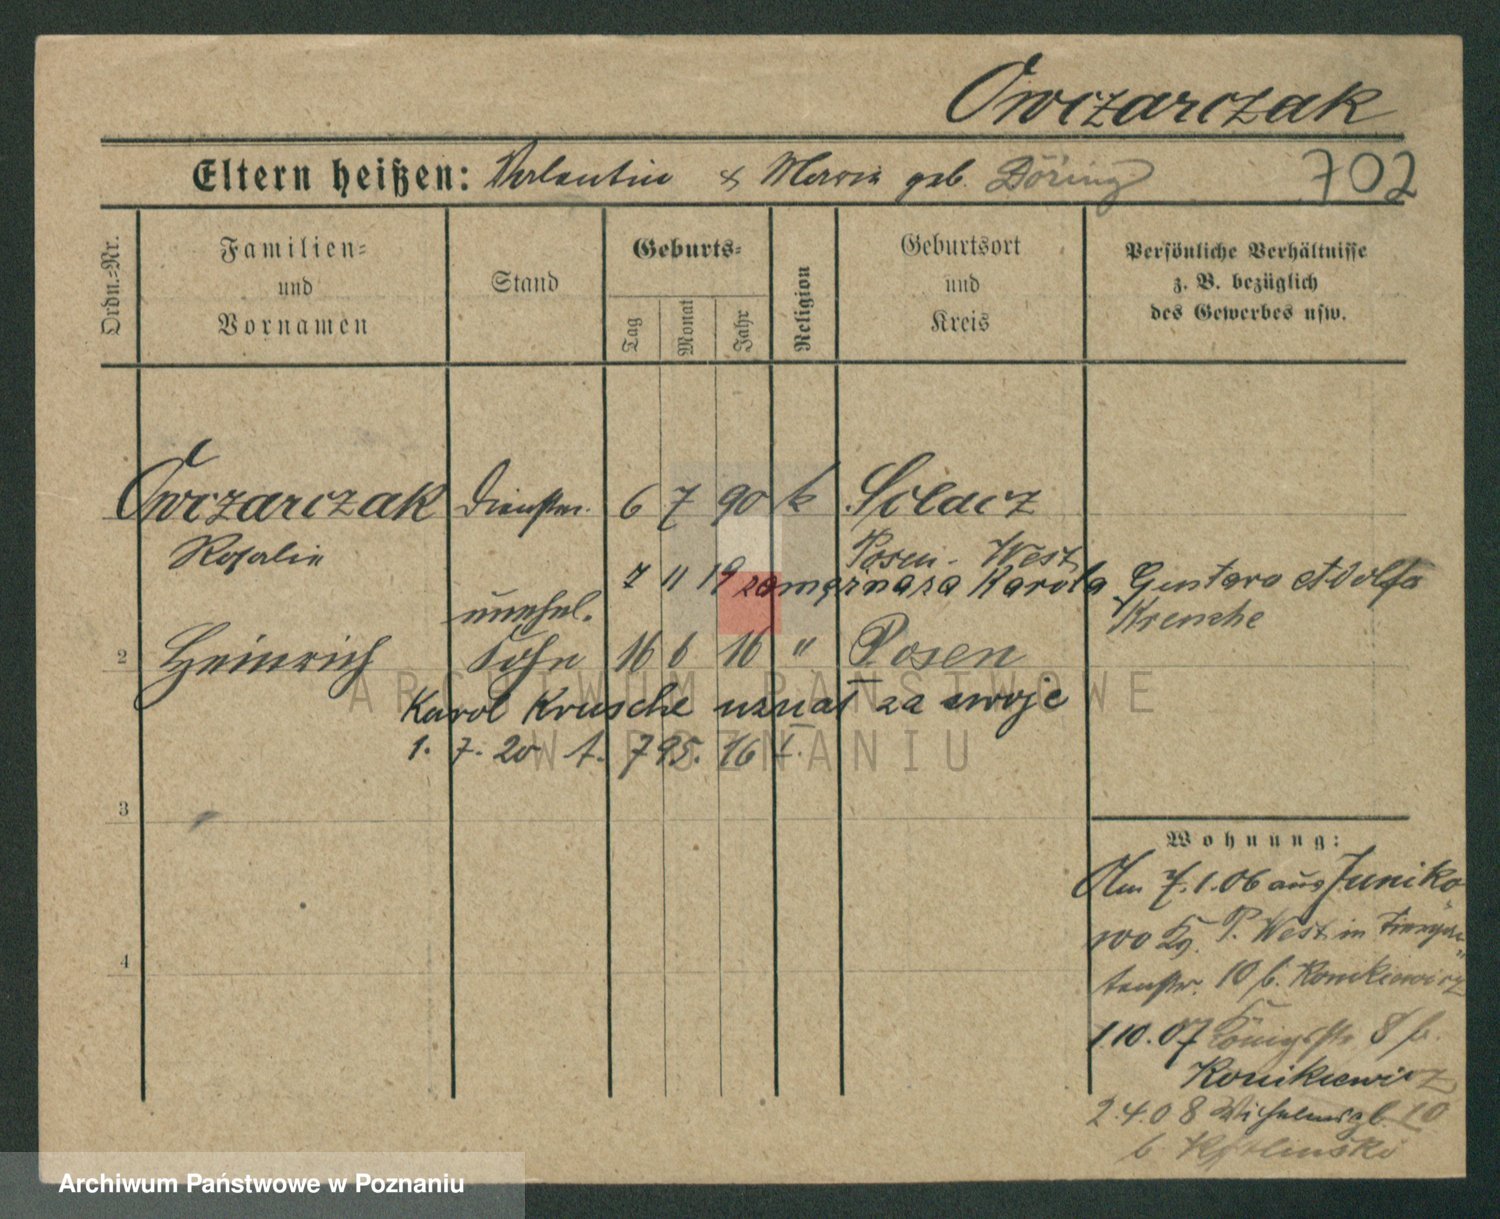 Owczarczak
Eltern heißen: Valentin & Maria geb. Döring 702
Ordn.=Nr.
Familien=
und
Vornamen
Stand
Geburts=
Tag
Monat
Jahr
Religion
Geburtsort
und
Kreis
Persönliche Verhältnisse
z. B. bezüglich
des Gewerbes usw.
Owczarczak Dienstm. 6 7 90 k Solacz
Rosalie Posen-West
7 11 19 zam. Karola Gustava Adolfa
Krusche
unehel.
2 Heinrich Sohn 16 6 16 " Posen
Karol Krusche uznał za swoje
1. 7. 20 795. 16
3
4
Wohnung:
Am 7.1.06 aus Juniko
wo Kr. P. West in
10 b. Konikiewicz
1.10.07 Königstr. 8 b.
Konikiewicz
2.4.08 Wilhelmspl. 10
b.
ARCHIWUM PAŃSTWOWE
W POZNANIU
Archiwum Państwowe w Poznaniu